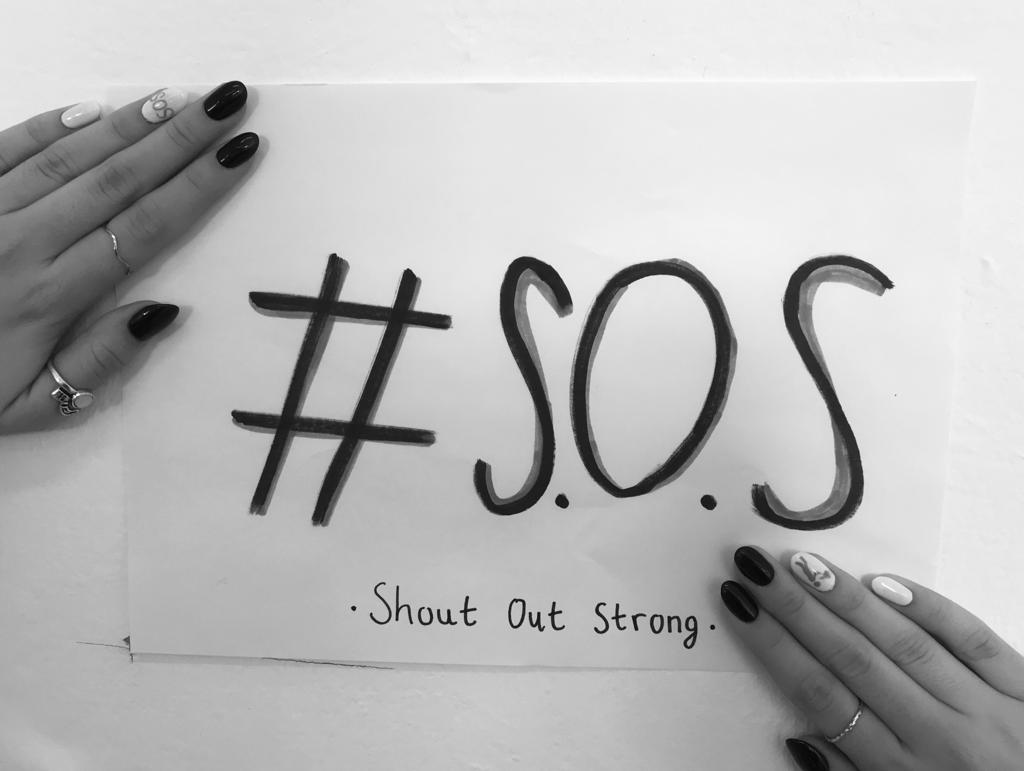 SOS
#S.O.S
. Shout Out Strong.